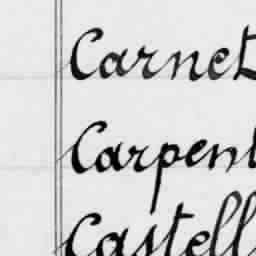 Carnet
Carpent
Castell